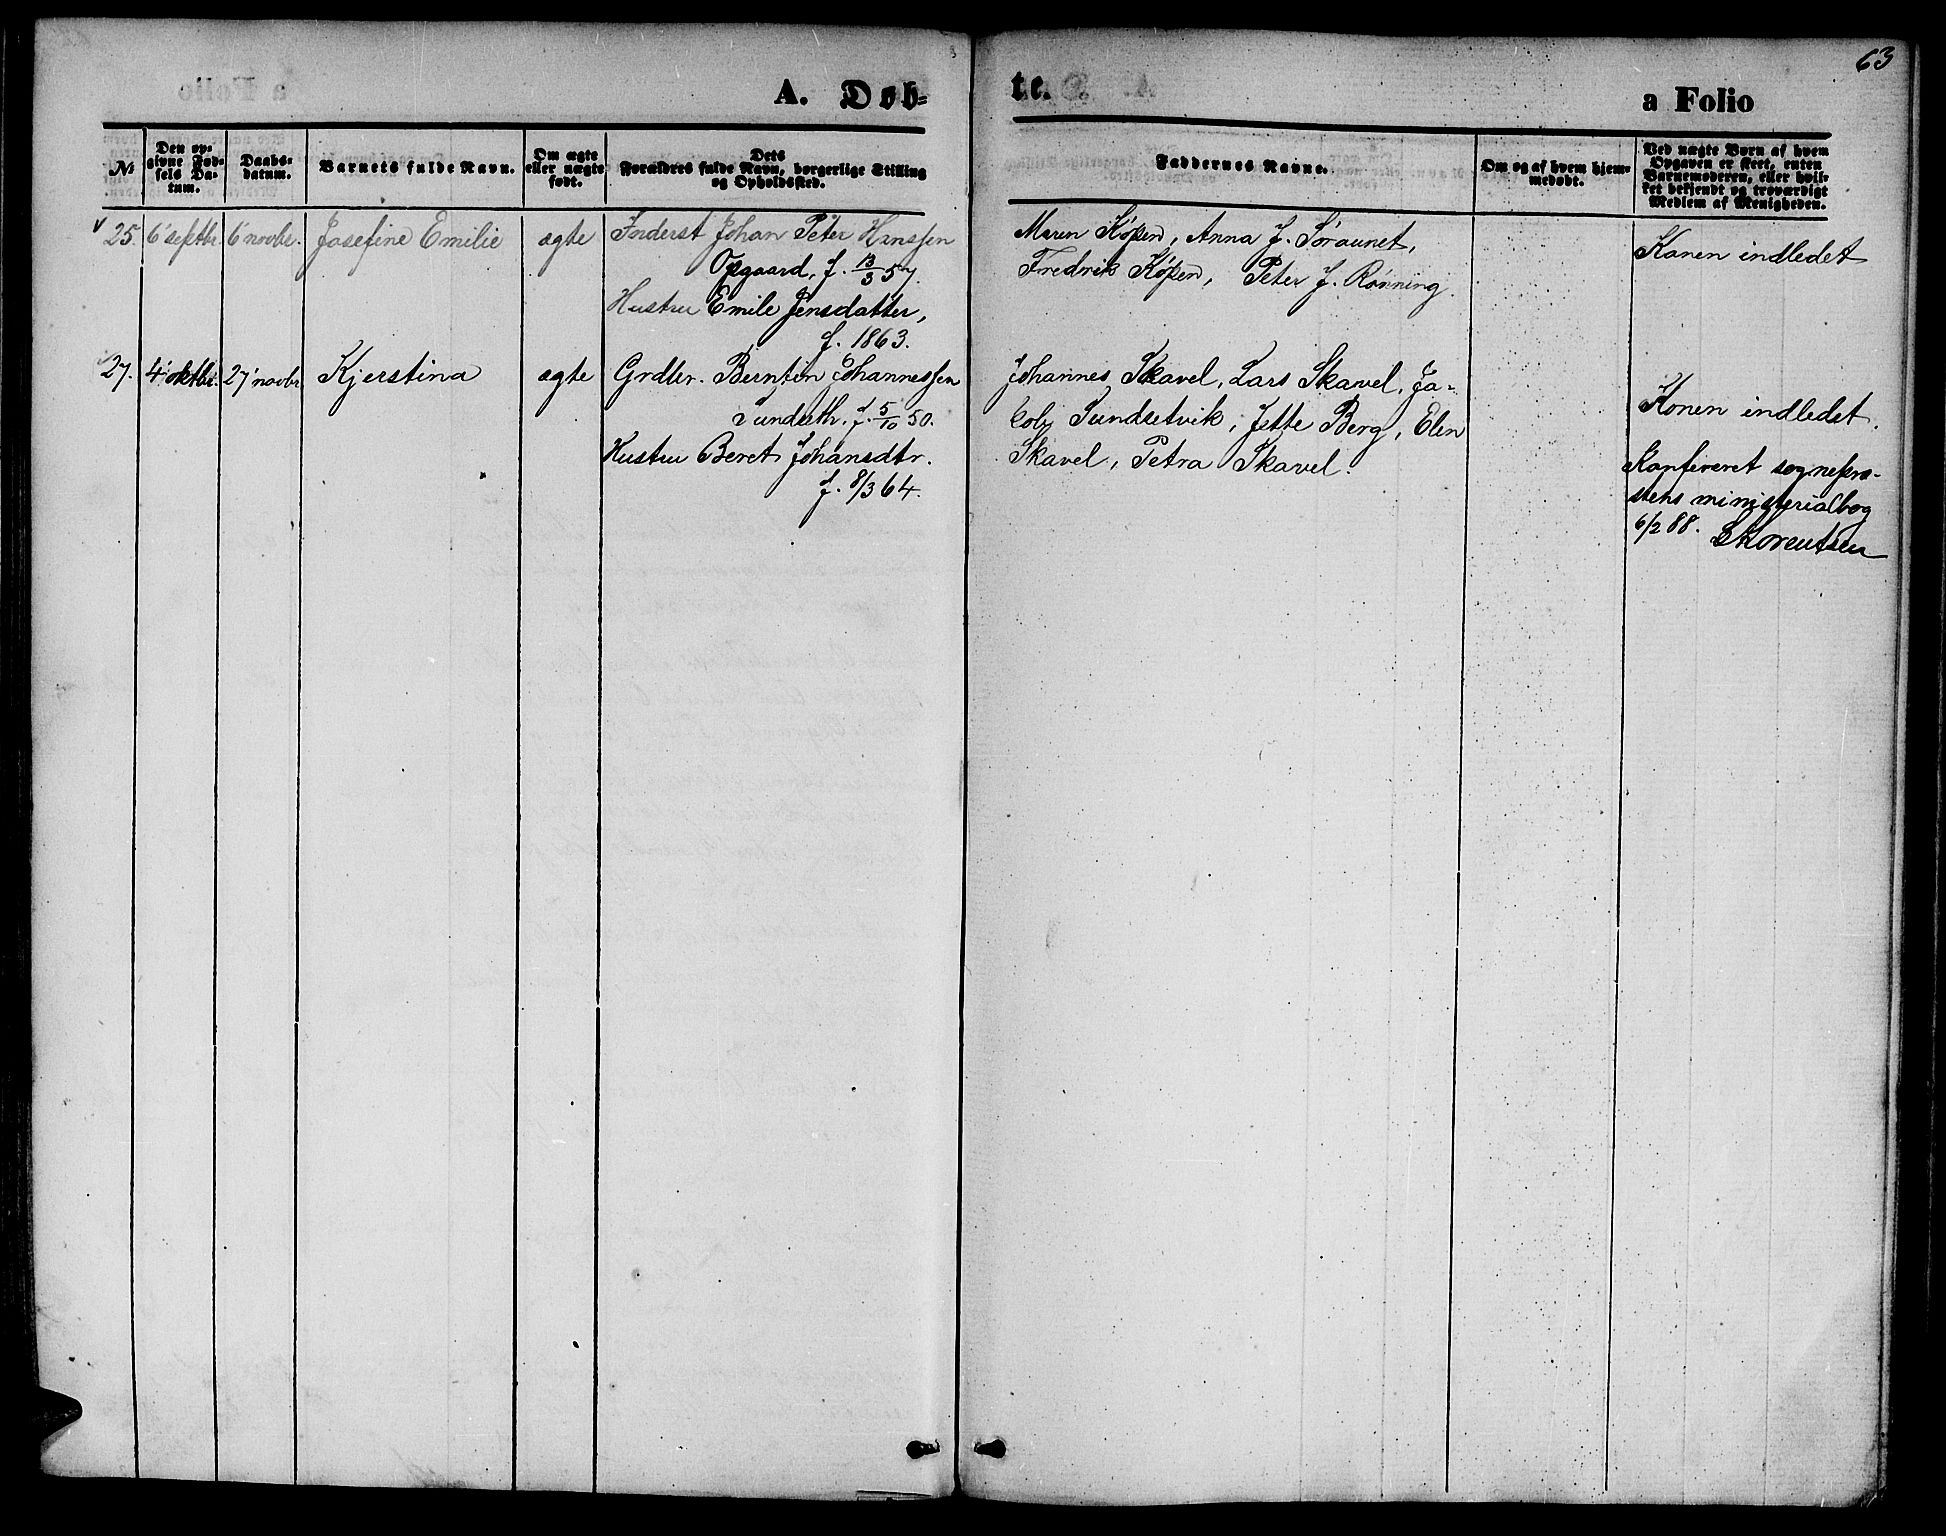 63
A. Døb=
te.
a Folio
№
Den op=
givne Fød=
sels Da=
tum.
Daabs=
datum.
Barnets fulde Navn.
Om ægte
eller uægte
født.
Dets
Forældres fulde Navn, borgerlige Stilling
og Opholdssted.
Faddernes Navne.
Om og af hvem hjem=
medøbt.
Ved uægte Børn af hvem
Opgaven er skeet, enten
Barnemoderen, eller hvil=
ket bekjendt og troværdigt
Medlem af Menigheden.
25. 6' septbr. 6' novbr. Josefine Emilie ægte Inderst Johan Peter Hanssen
Opgaard, f. 13/3 57.
Hustru Emile Jensdatter,
f. 1863.
Maren Köpen, Anna J. Söraunet,
Fredrik Köpen, Peter J. Rönning.
Konen indledet
27. 4' oktbr. 27' novbr Kjerstina ægte Grdbr. Berntin Johannessen
Sundseth. f. 5/10 50.
Hustru Beret Johansdtr.
f. 8/3 64.
Johannes Skavel, Lars Skavel, Ja-
kob Sundsetvik, Jette Berg, Elen
Skavel, Petra Skavel.
Konen indledet.
Konfereret sognepre-
stens ministerialbog
6/2 88.